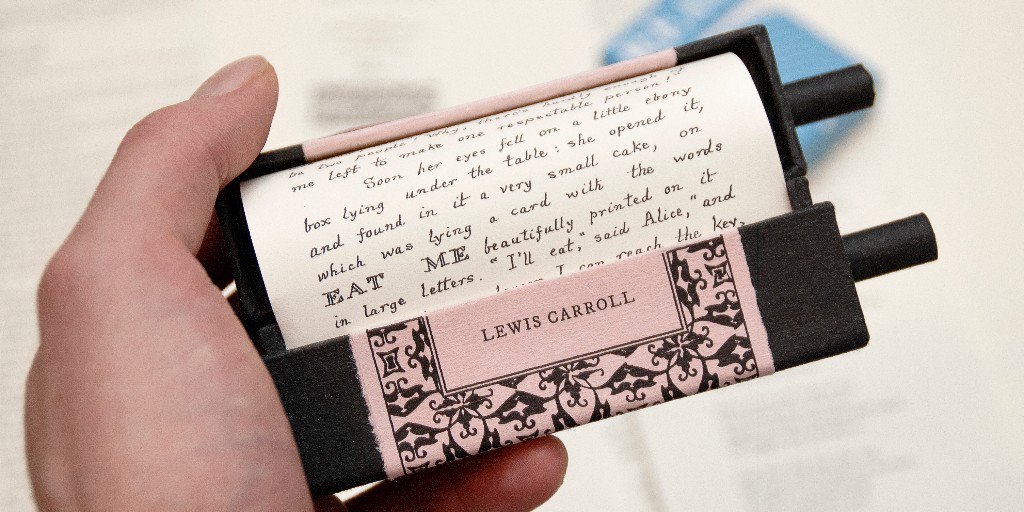 be two people! Why, there's hardly enough of
me left to make one respectable person!"
Soon her eyes fell on a little ebony
box lying under the table: she opened it,
and found in it a very small cake, on
which was lying a card with the words
EAT ME beautifully printed on it
in large letters. "I'll eat," said Alice, "and
I can reach the key,
LEWIS CARROLL